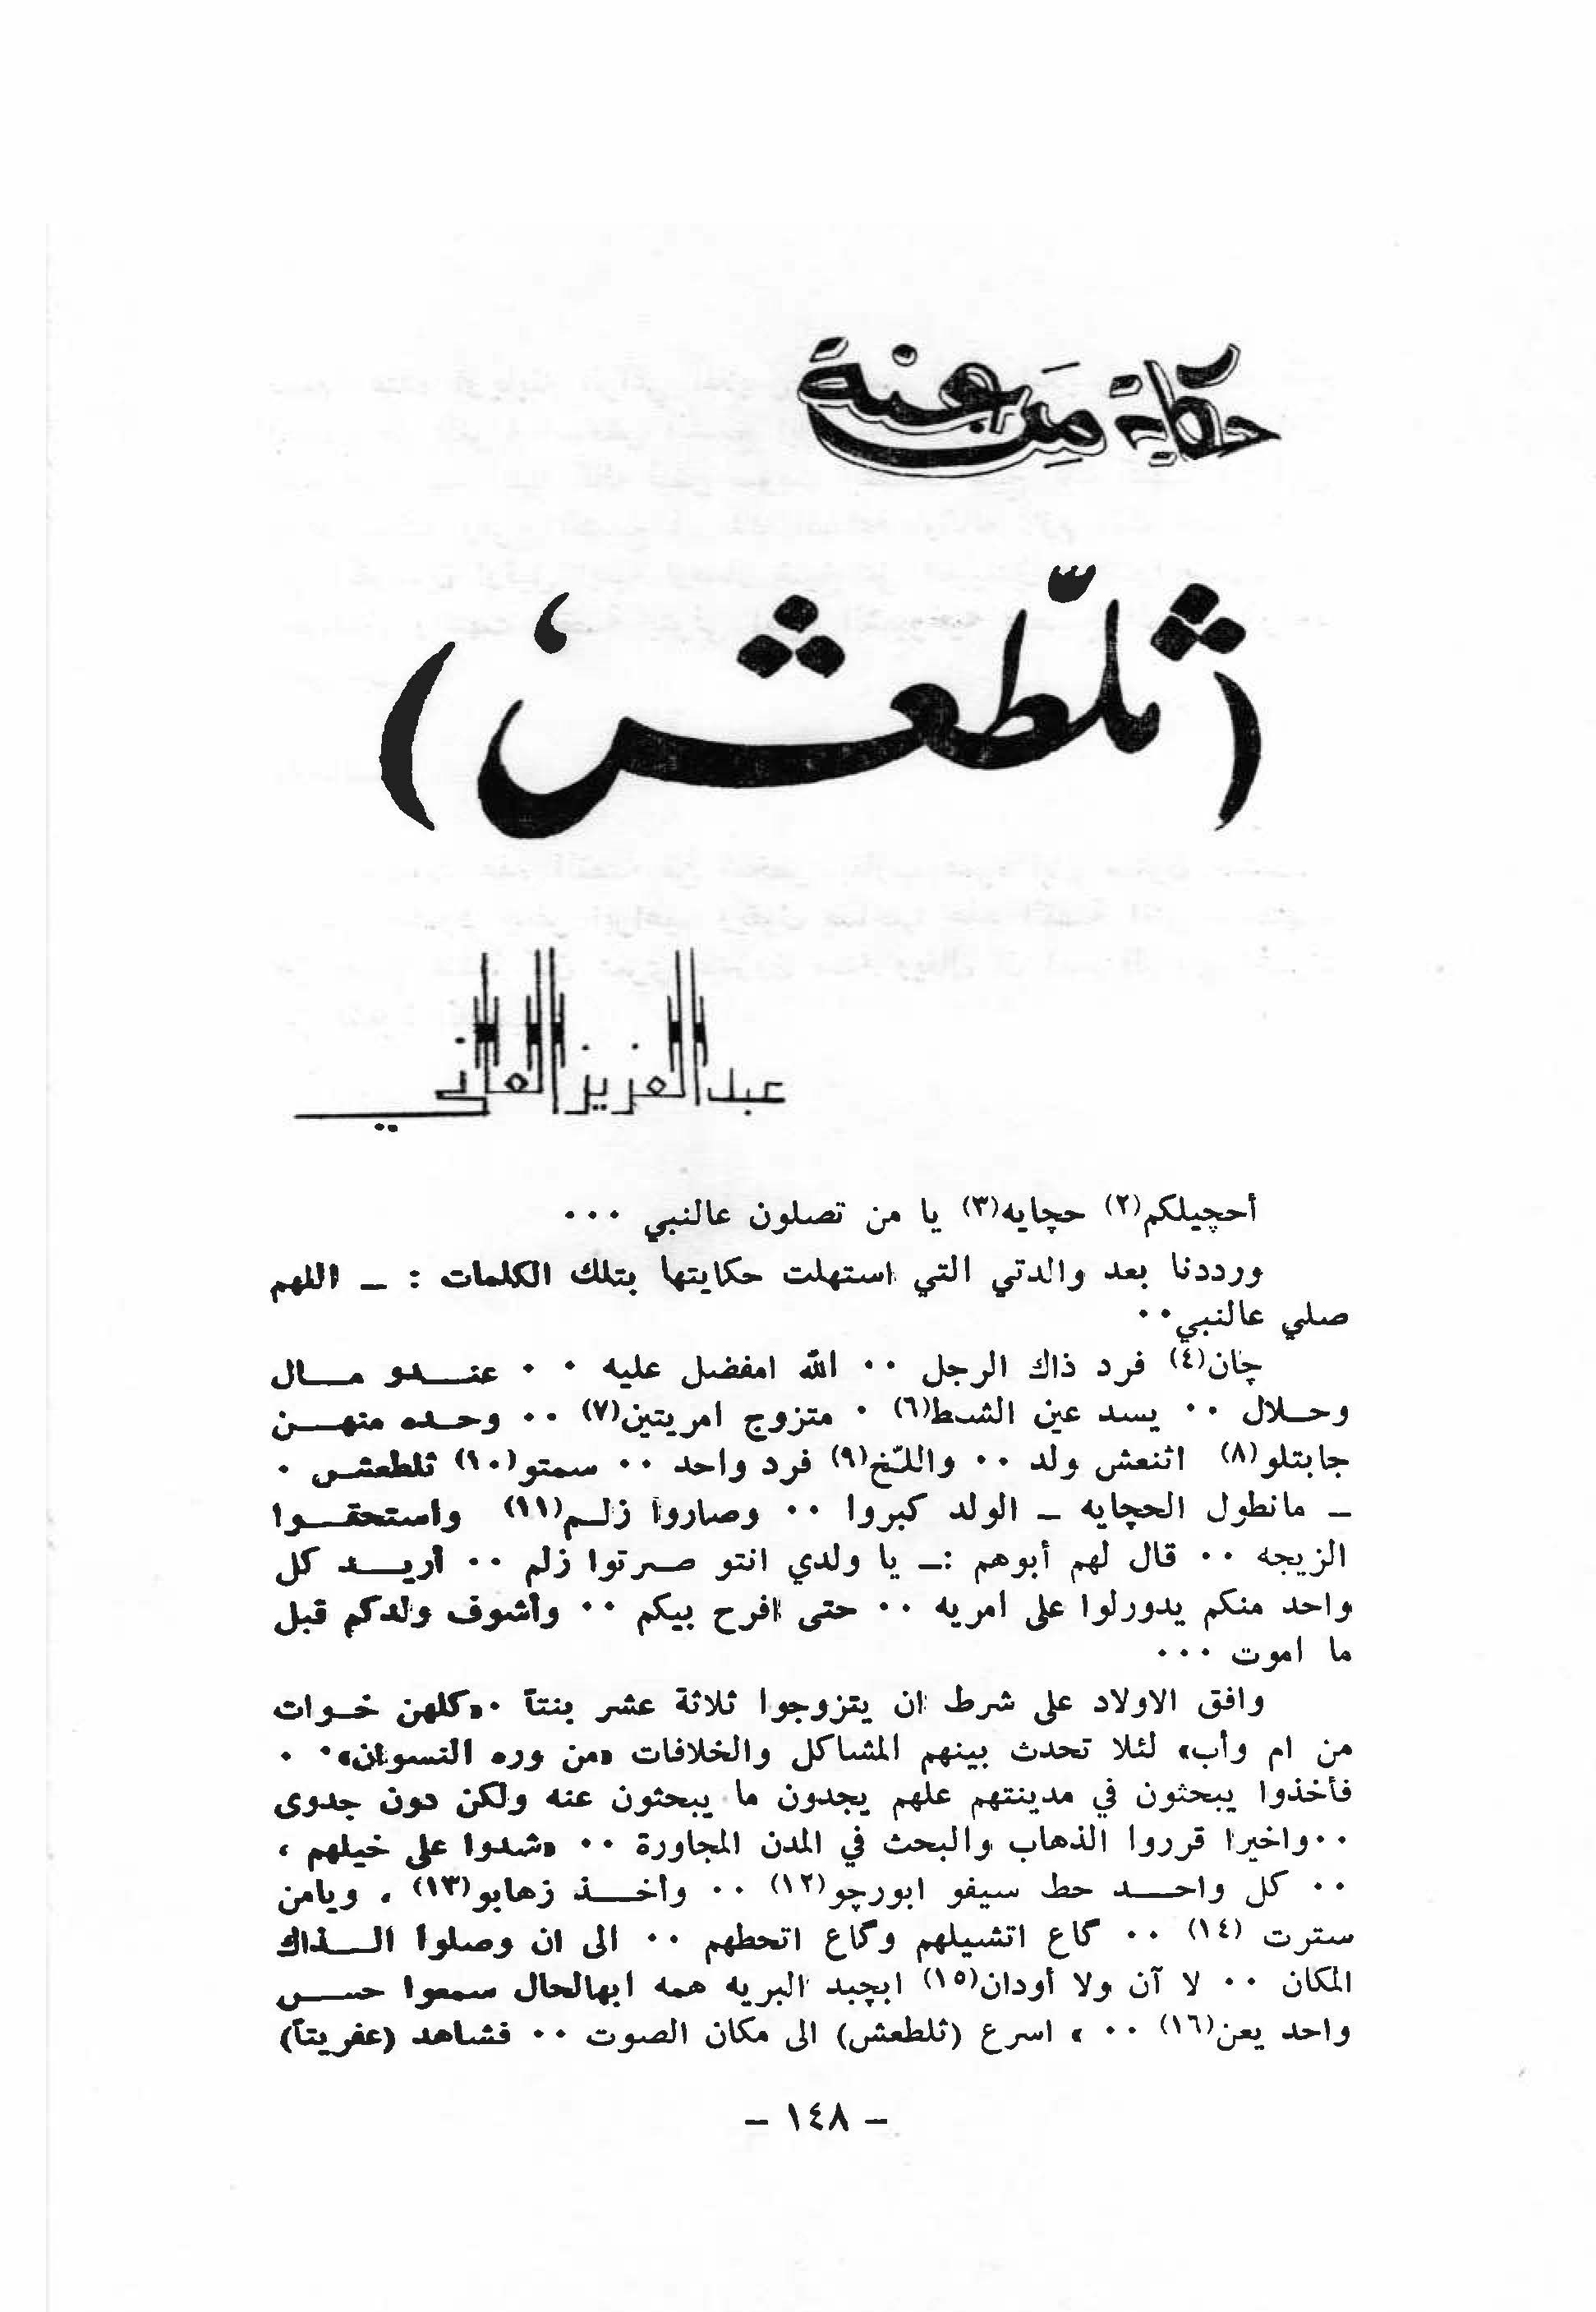 حكاية من عنة
(ثلّطعش)
عبد العزيز العاني
أحچيلكم(٢) حچايه(٣) يا من تصلون عالنبي ٠٠٠
ورددنا بعد والدتي التي استهلت حكايتها بتلك الكلمات : ـ اللهم
صلي عالنبي٠٠
چان(٤) فرد ذاك الرجل ٠٠ الله امفضل عليه ٠ ٠ عنـــدو مـــال
وحــلال ٠٠ يسد عين الشط(٦) ٠ متزوج امريتين(٧) ٠٠ وحــده منهـــن
جابتلو(٨) اثنعش ولد ٠٠ واللـّخ(٩) فرد واحد ٠٠ سمتو(١٠) ثلطعشـس ٠
ـ مانطول الحچايه ـ الولد كبروا ٠٠ وصاروا زلــم(١١) واستحقـــوا
الزيجه ٠٠ قال لهم أبوهم :ـ يا ولدي انتو صـرتوا زلم ٠٠ أريـــد كل
واحد منكم يدورلوا على امريه ٠٠ حتى افرح بيكم ٠٠ وأشوف ولدكم قبل
ما اموت ٠٠٠
وافق الاولاد على شرط ان يتزوجوا ثلاثة عشر بنتاً ٠«كلهن خـوات
من ام وأب» لئلا تحدث بينهم المشاكل والخلافات «من وره النسوان»٠ ٠
فأخذوا يبحثون في مدينتهم علهم يجدون ما يبحثون عنه ولكن دون جدوى
٠٠واخيرا قرروا الذهاب والبحث في المدن المجاورة ٠٠ «شدوا على خيلهم ،
٠٠ كل واحـــد حط سيفو ابورچو(١٢) ٠٠ وأخـــذ زهابو(١٣) ، ويامن
سترت (١٤) ٠٠ گاع اتشيلهم وگاع اتحطهم ٠٠ الى ان وصلوا الـــذاك
المكان ٠٠ لا آن ولا أودان(١٥) ابچبد البريه همه ابهالحال سمعوا حســـس
واحد يعن(١٦) ٠٠ » اسرع (ثلطعش) الى مكان الصوت ٠٠ فشاهد (عفريتاً)
ـ ١٤٨ ـ